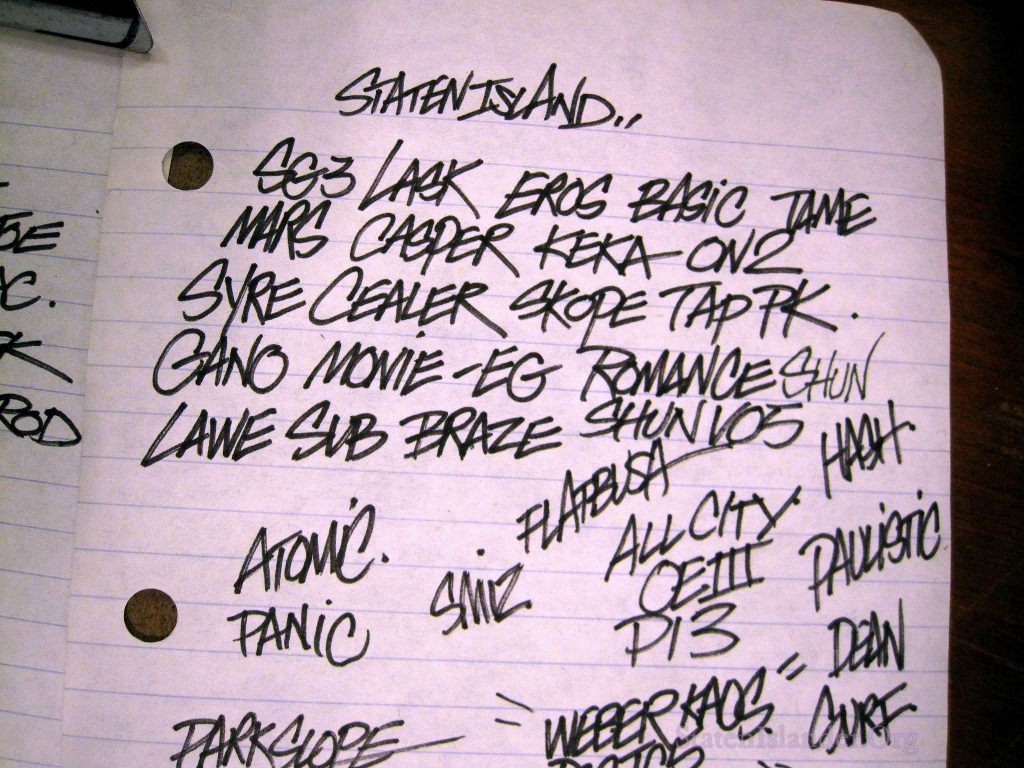 STATEN ISLAND..
SG3 LASK EROS BASIC JAME
MARS CASPER KEKA-ON2
SYRE CEALER SKOPE TAP PK.
GANO MOVIE-EG ROMANCE SHUN
LAWE SUB BRAZE SHUN VO5
FLATBUSH
HASH.
ATOMIC.
ALL CITY.
OEIII
PAULISTIC
SMIZ
PANIC
P13
DEAN
PARK SLOPE
"WEBER KAOS"
SURF
5E
C.
K
ROD
StatenIslander.Org